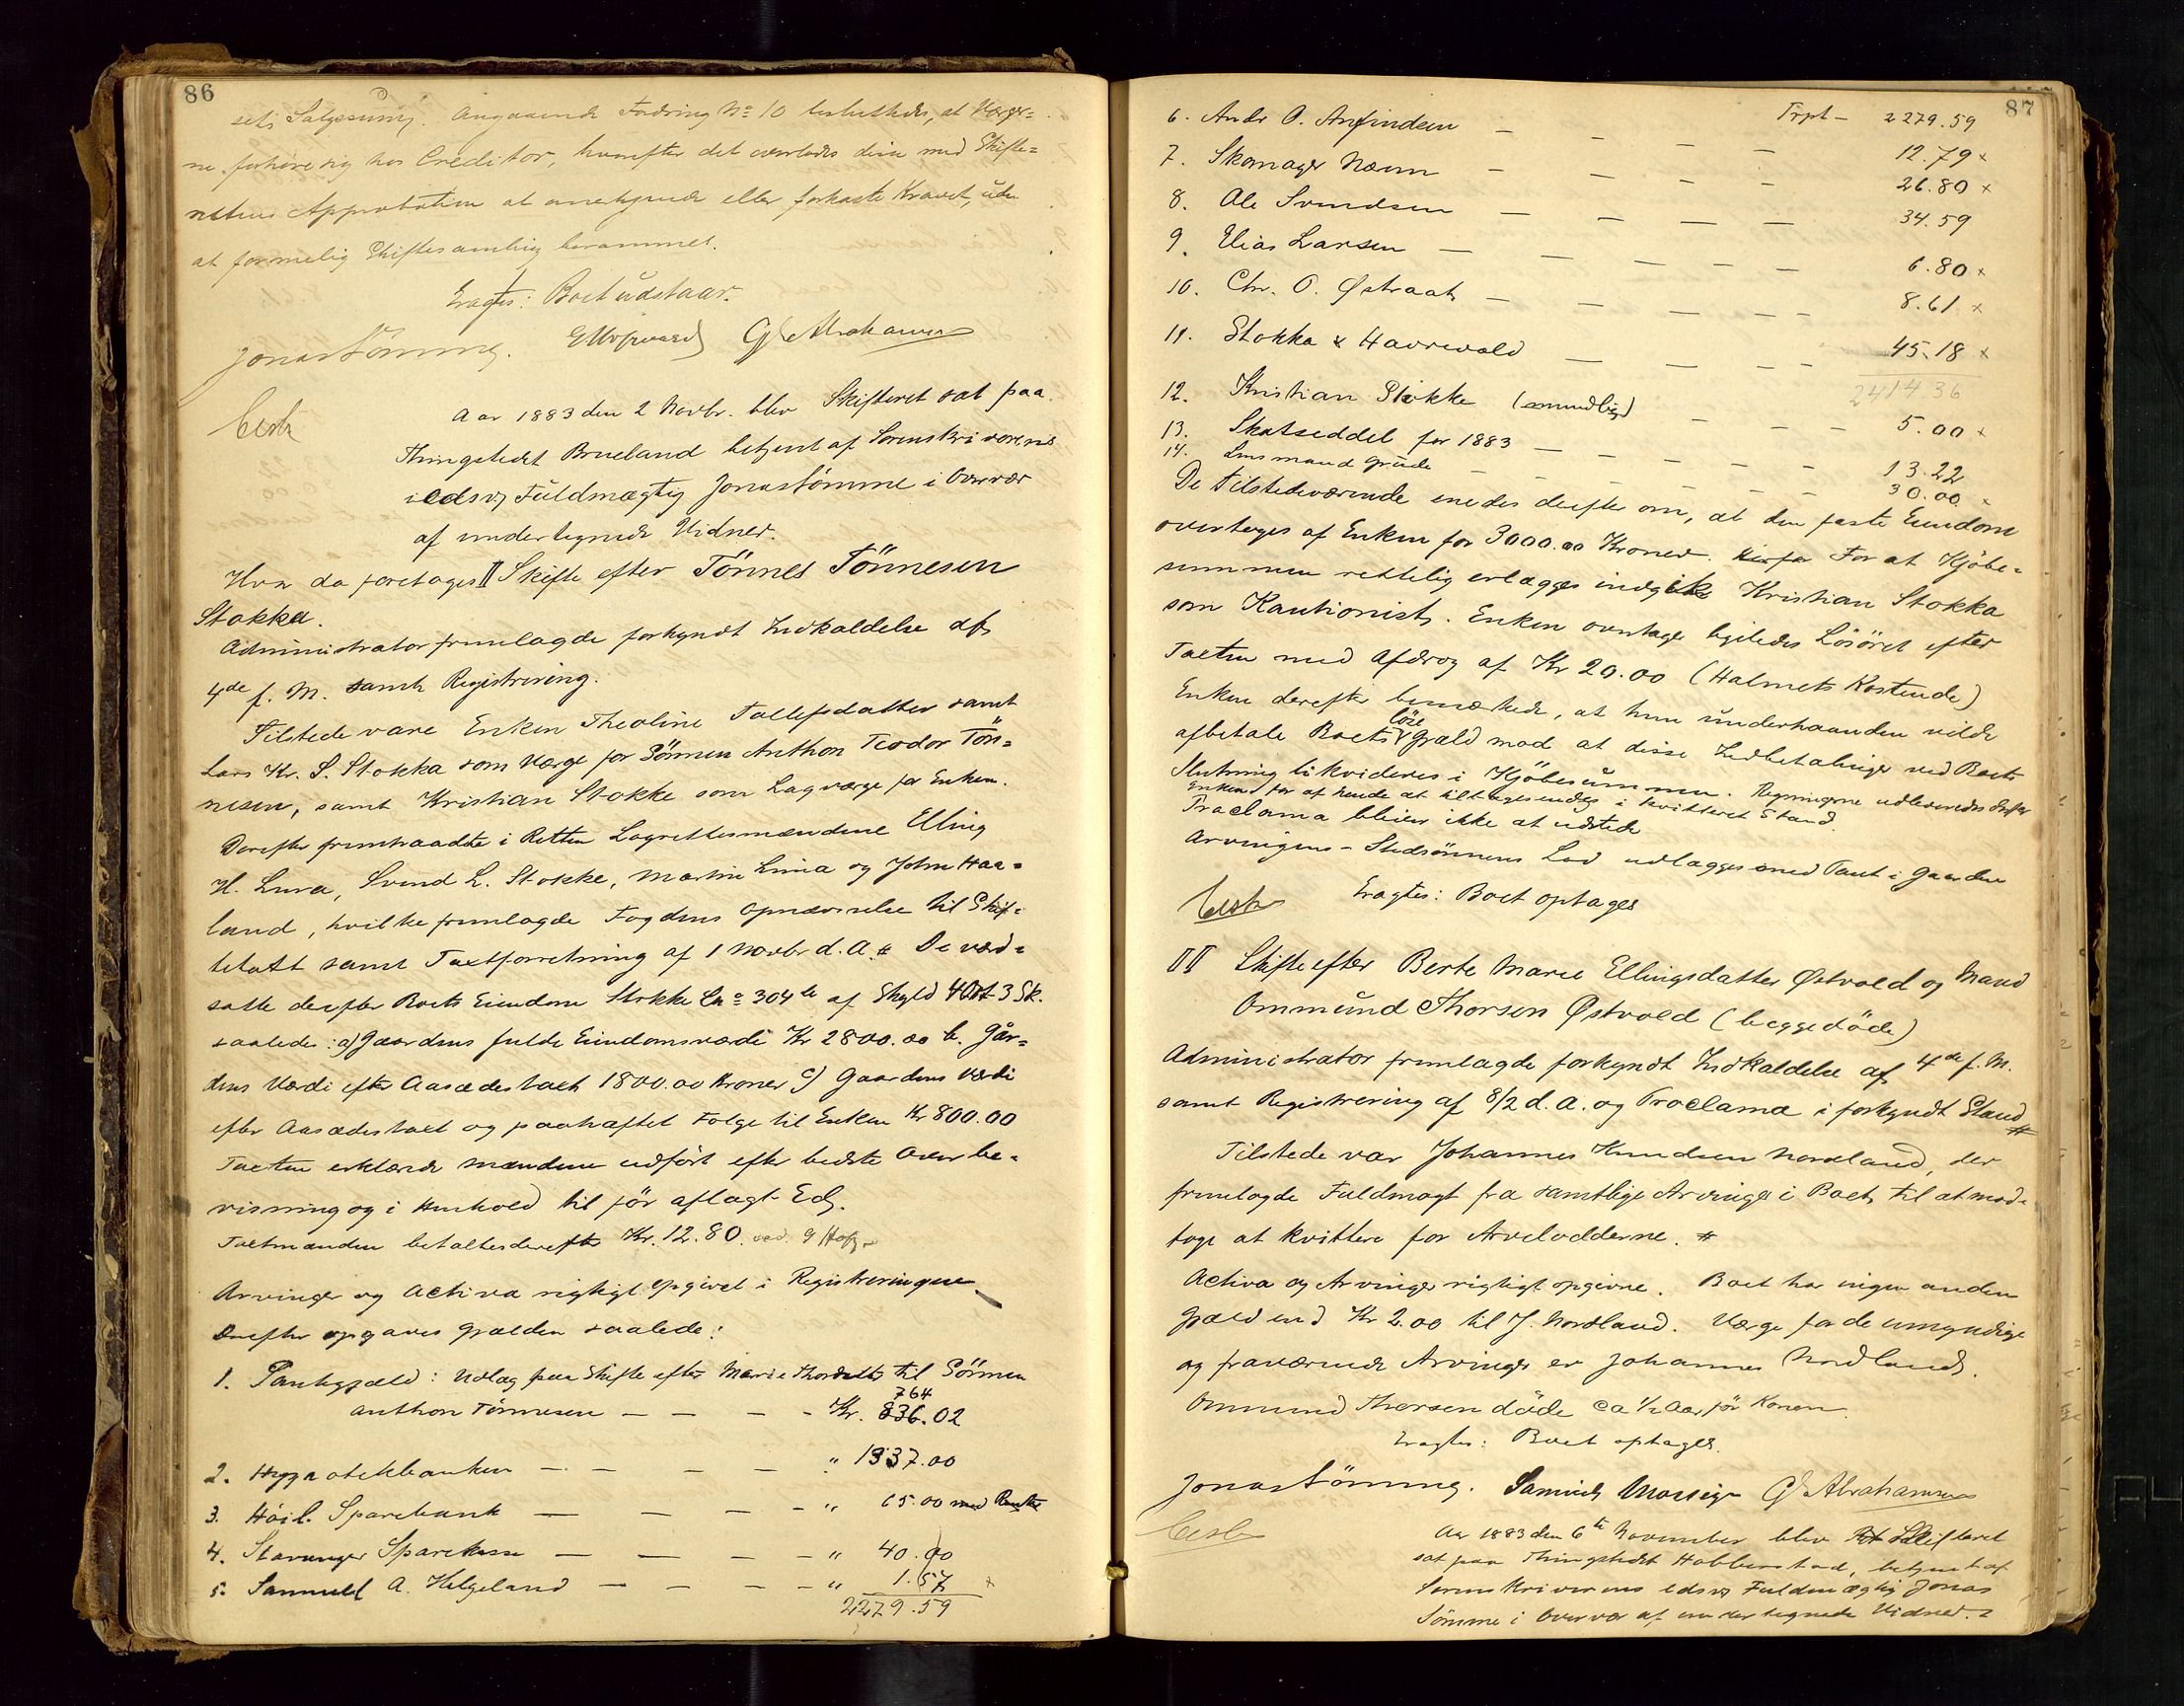 86
sets Salgssum. Angaaende Fodring No 10 besluttedes, at Værger=
ne forhøre sig hos Creditor, hvorefter det overlodes disse med Skifte=
rettens Approbation at anerkjende eller forkaste Kravet, uden
at formelig Skiftesamling berammes.
Eragtes: Boet udstaar.
Jonas Sömme. G Abrahamsen
Besk
Aar 1883 den 2 Novbr. blev Skifteret sat paa
Thingstedet Brueland betjent af Sorenskriverens
edsv Fuldmægtig Jonas Sömme i Overvær
af undertegnede Vidner.
Hvor da foretoges II Skifte efter Tönnes Tönnesen
Stokka.
Administrator fremlagde forkyndt Indkaldelse af
4de f. M. samt Registrering.
Tilstede vare Enken Theoline Tollefsdatter samt
Lars Kr. S. Stokka som Værge for Sönnen Anthon Teodor Tön=
nesen, samt Kristian Stokke som Lagværge for Enken.
Derefter fremtraadte i Retten Lagrettesmændene Elling
H. Lura, Svend L. Stokke, Martin Lima og John Haa=
land, hvilke fremlagde Fogdens Opnævnelse til Skif=
tetaxt samt Taxtforretning af 1 Novbr d. A. De værd=
satte derefter Boets Eiendom Stokke Lno 304 b af Skyld 4 Ort 3 Sk.
saaledes: a) Gaardens fulde Eiendomsværdi Kr 2800.00 b. Går=
dens Værdi efter Aasædestaxt 1800.00 Kroner c) Gaardens Værdi
efter Aasædestaxt og paahæftet Folge til Enken Kr 800.00
Taxten erklærede Mændene udfört efter bedste Overbe=
visning og i Henhold til för aflagt Ed.
Taxtmænden betaltes derefter Kr. 12.80
Arvinger og Activa rigtigt opgivet i Registreringen
Derefter opgaves Gjælden saaledes:
1. Pantegjæld: Udlag paa Skifte efter Marie Thorsdatter til Sönnen
764
Anthon Tönnesen — — — - Kr. 836.02
2. Hypothekbanken — - — — " 1337.00
3. Höil. Sparebank — — — - " 65.00 med Renter
4. Stavanger Sparekasse — — — - " 40.00
5. Samuel A. Helgeland — — — - " 1.57 x
2279.59
87
Trpt — 2279.59
6. Andr O. Anfindsen — — — — 12.79 x
7. Skomager Nævn — — — — 26.80 x
8. Ole Svendsen — — — — 34.59
9. Elias Larsen — — — — 6.80 x
10. Chr. O. Østraat — — — — 8.61 x
11. Stokka & Haverevold — — — — 45.18 x
2414.36
12. Kristian Stokke (mundlig) — — — 5.00 x
13. Skatseddel for 1883 — — — — 13.22
14. Lensmand Grude — — — — 30.00 x
De Tilstedeværende enedes derefter om, at den faste Eiendom
overtages af Enken for 3000.00 Kroner. For at Kjöbe=
summen rettelig erlægges indgik Kristian Stokka
som Kautionist. Enken overtager ligeledes Lösöret efter
Taxten med Afdrag af Kr 20.00 (Halmets Kostende)
Enken derefter bemærkede, at hun underhaanden vilde
löse
afbetale Boets Gjæld mod at disse Indbetalinger ved Boets
Slutning likvideres i Kjöbesummen. Regningerne udleveredes derfor
Enken for af hende at tilbagesendes i kvitteret Stand.
Proclama bliver ikke at udstede
Arvingens - Stedsönnens Lod udlægges med Pant i Gaarden
Eragtes: Boet optages
Besk
III Skifte efter Berte Marie Ellingsdatter Østvold og Mand
Ommund Thorsen Østvold (begge döde)
Administrator fremlagde forkyndt Indkaldelse af 4de f. M.
samt Registrering af 8/2 d. A. og Proclama i forkyndt Stand
Tilstede var Johannes Knudsen Nordland, der
fremlagde Fuldmagt fra samtlige Arvinger i Boet til at mod=
tage at kvittere for Arvelodderne.
Activa og Arvinger rigtigt opgivne. Boet har ingen anden
Gjæld end Kr 2.00 til J. Nordland. Værge for de umyndige
og fraværende Arvinger er Johannes Nordland.
Ommund Thorsen döde ca 1/2 Aar för Konen.
Eragtes: Boet optages.
Jonas Sömme. G Abrahamsen
Besk
Aar 1883 den 6te November blev Skifteret
sat paa Thingstedet Hobberstad, betjent af
Sorenskriverens edsv Fuldmægtig Jonas
Sömme i Overvær af undertegnede Vidner.